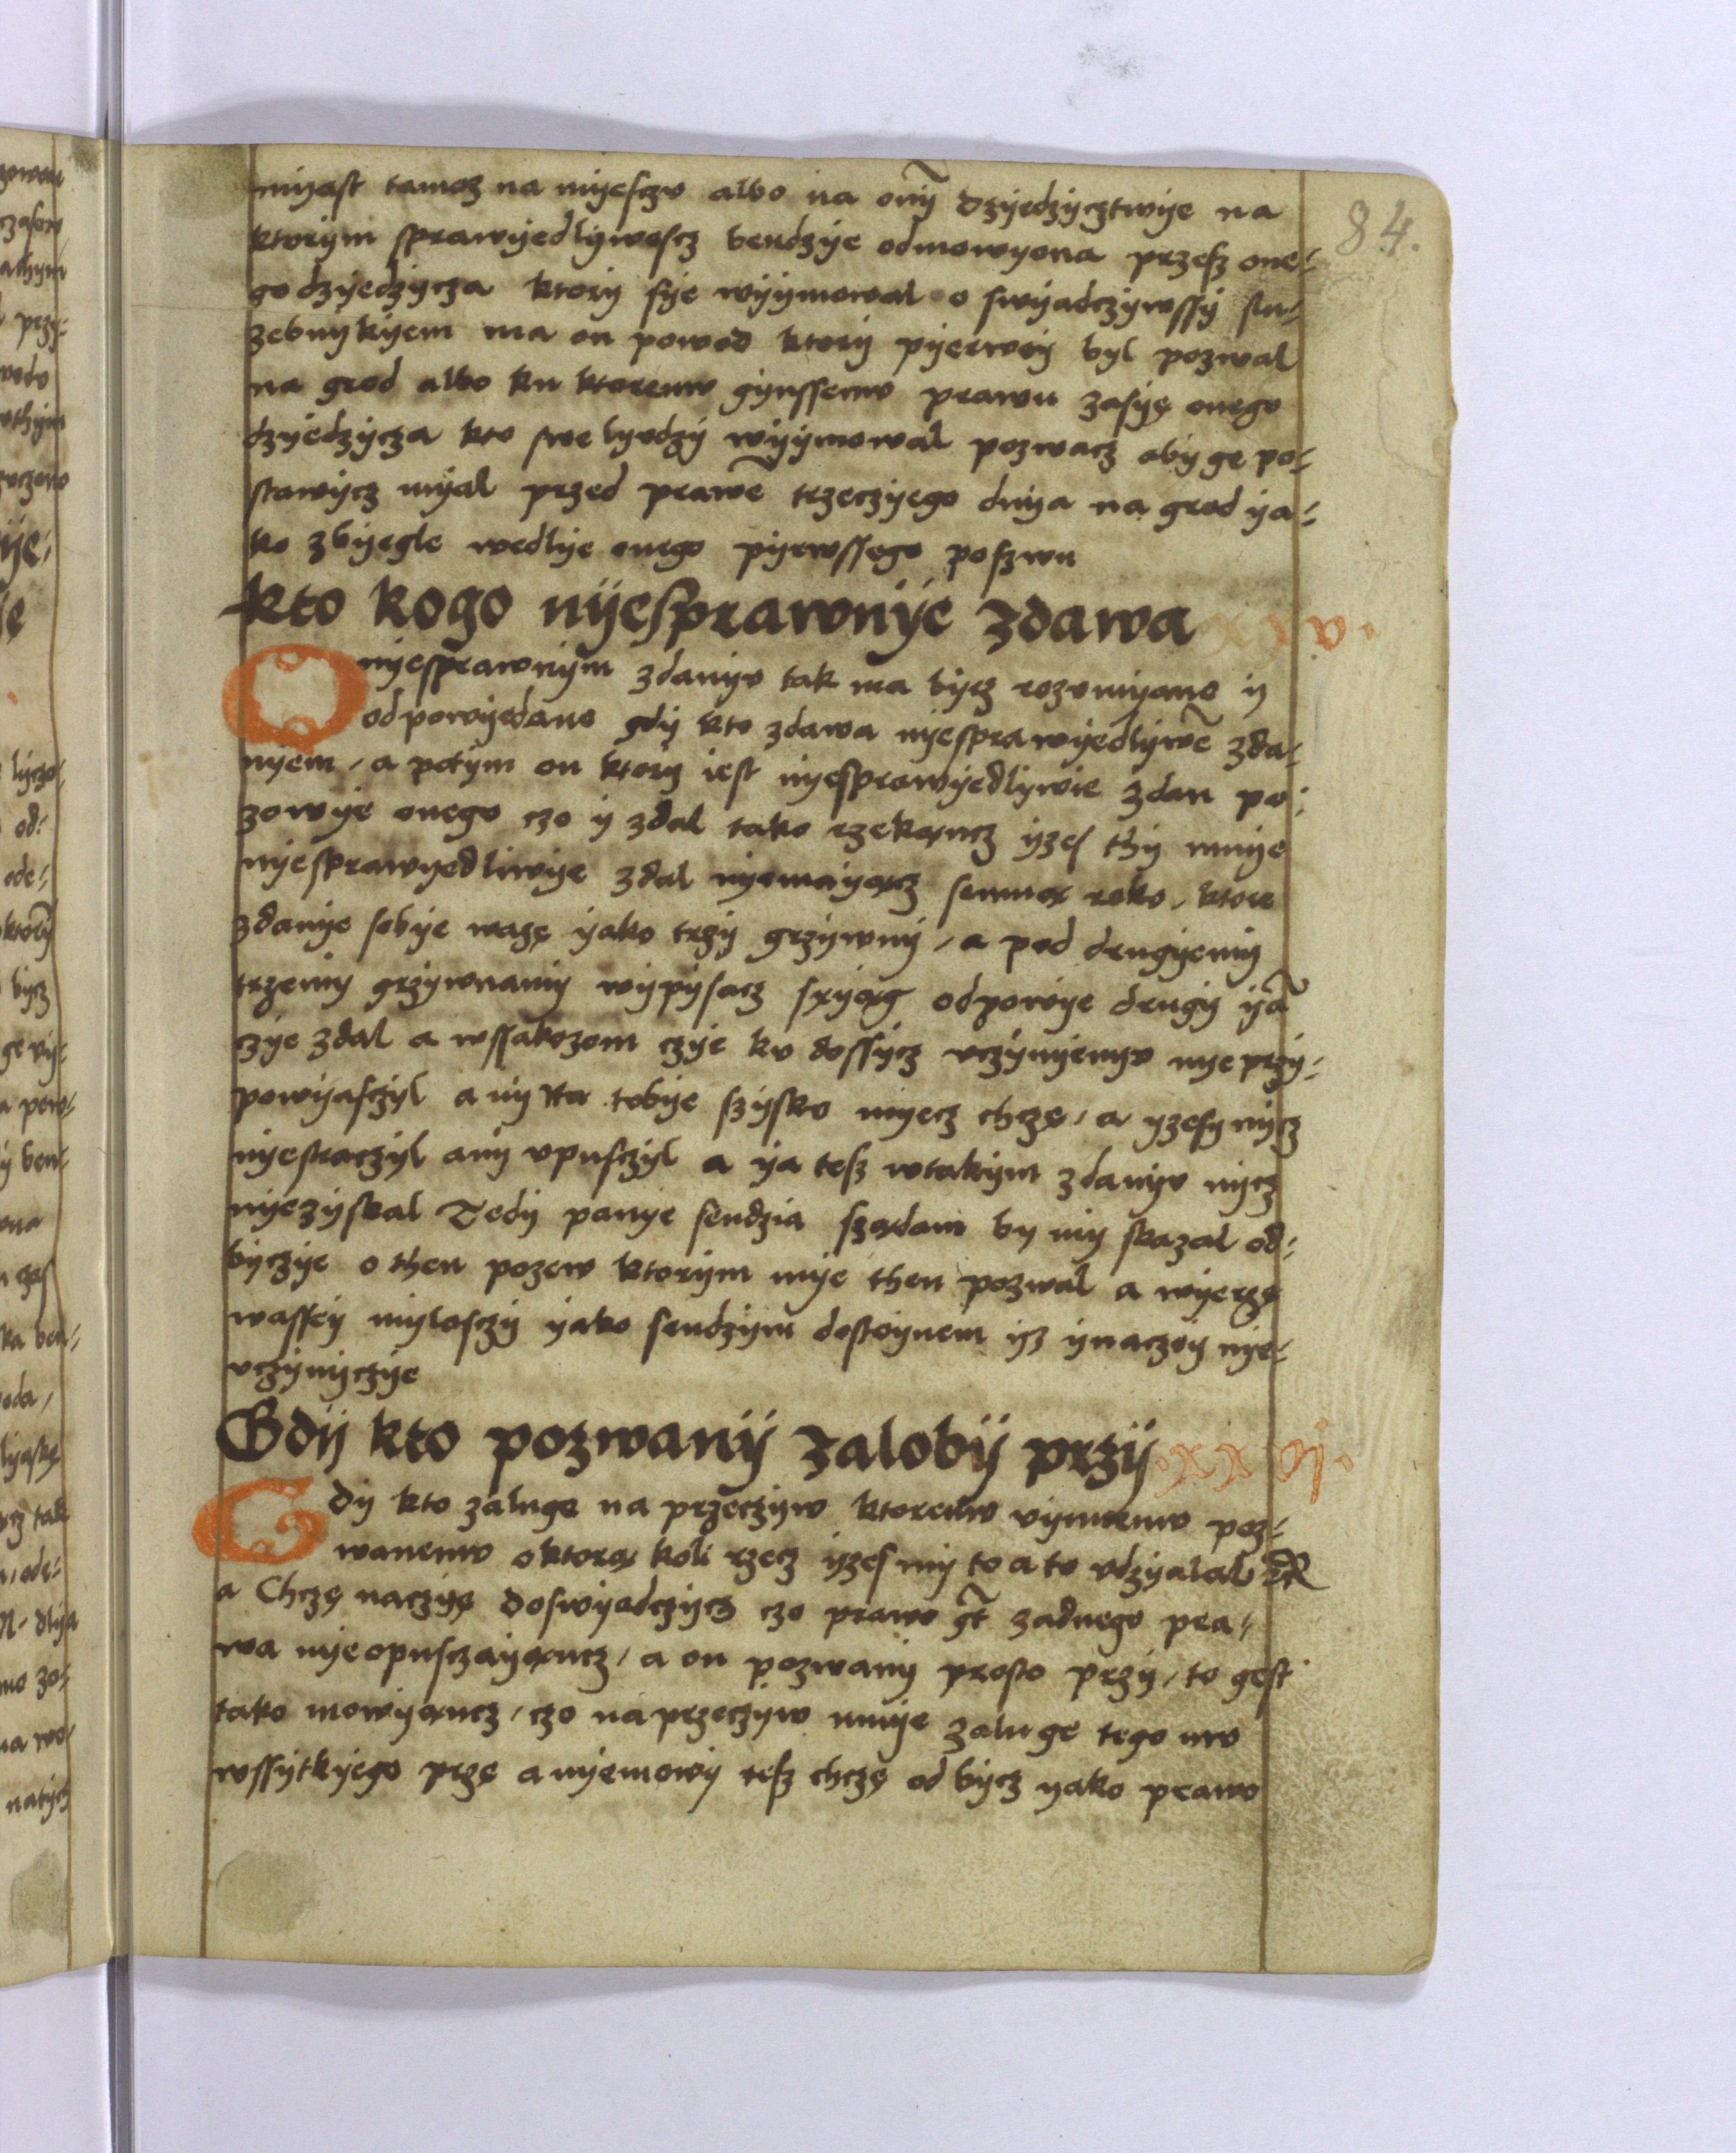 84.
myast tamosz na myesczv albo na onỹ dzyedzycztwye na
ktorym sprawyedlywoscz bendzye odmowyona przesz one⸗
go dzyedzycza ktory sye wyymowal o swyadczywssy slu⸗
zebnykyem ma on powod ktory pyerwey byl pozwal
na grod albo ku ktoremv gynssemv prawu zasyę onego
dzyedzycza kto swe lyvdzy wyymowal pozwacz aby ge po⸗
stawycz myal przed prawẽ trzeczyego dnya na grod ya⸗
ko zbyegle wedlye onego pyerwssego poszwu
kto kogo nyesprawnye zdawa
O nyesprawnym zdanyv tak ma bycz rozvmyano y
odpowyedano gdy kto zdawa nyesprawyedlywẽ zda⸗
nyem / a potym on ktory iest nyesprawyedlywie zdan po⸗
zowye onego czo y zdal tako rzekąncz yzes thy mnye
nyesprawyedliwye zdal nyemayącz semną roko / ktore
zdanye sobye wazę yako trzy grzywny / a pod drugyemy
trzemy grzywnamy wypysacz sxyąg odpowye drugy yã
czye zdal a wssakozem czye kv dossycz vczynyenyv nye przy⸗
powyasczyl any na tobye szysko myecz chczę / a yzesz nycz
nyestraczyl any vpusczyl a ya tesz wtakym zdanyv nycz
nyezyskal Tedy panye sendzia sządam by my skazal od⸗
byczye o then pozew ktorym mye then pozwal a wyerzę
wassey mylosczy yako sendzym dostoynem ysz ynaczey nye⸗
vczynyczye
Gdy kto pozwany zaloby przy
Gdy kto zaluge na przeczyw ktoremv vynnemv poz⸗
wanemv o ktorą koli rzecz yzes my to a to vdzyalal
a Chczę naczyę doswyadczycz czo prawo zadnego pra⸗
wa nyeopusczayąncz / a on pozwany prosto przy / to gest
tako mowyąncz / czo na przeczyw mnye zaluge tego mv
wssytkyego przę a nyemowy tesz chczę od bycz yako prawo